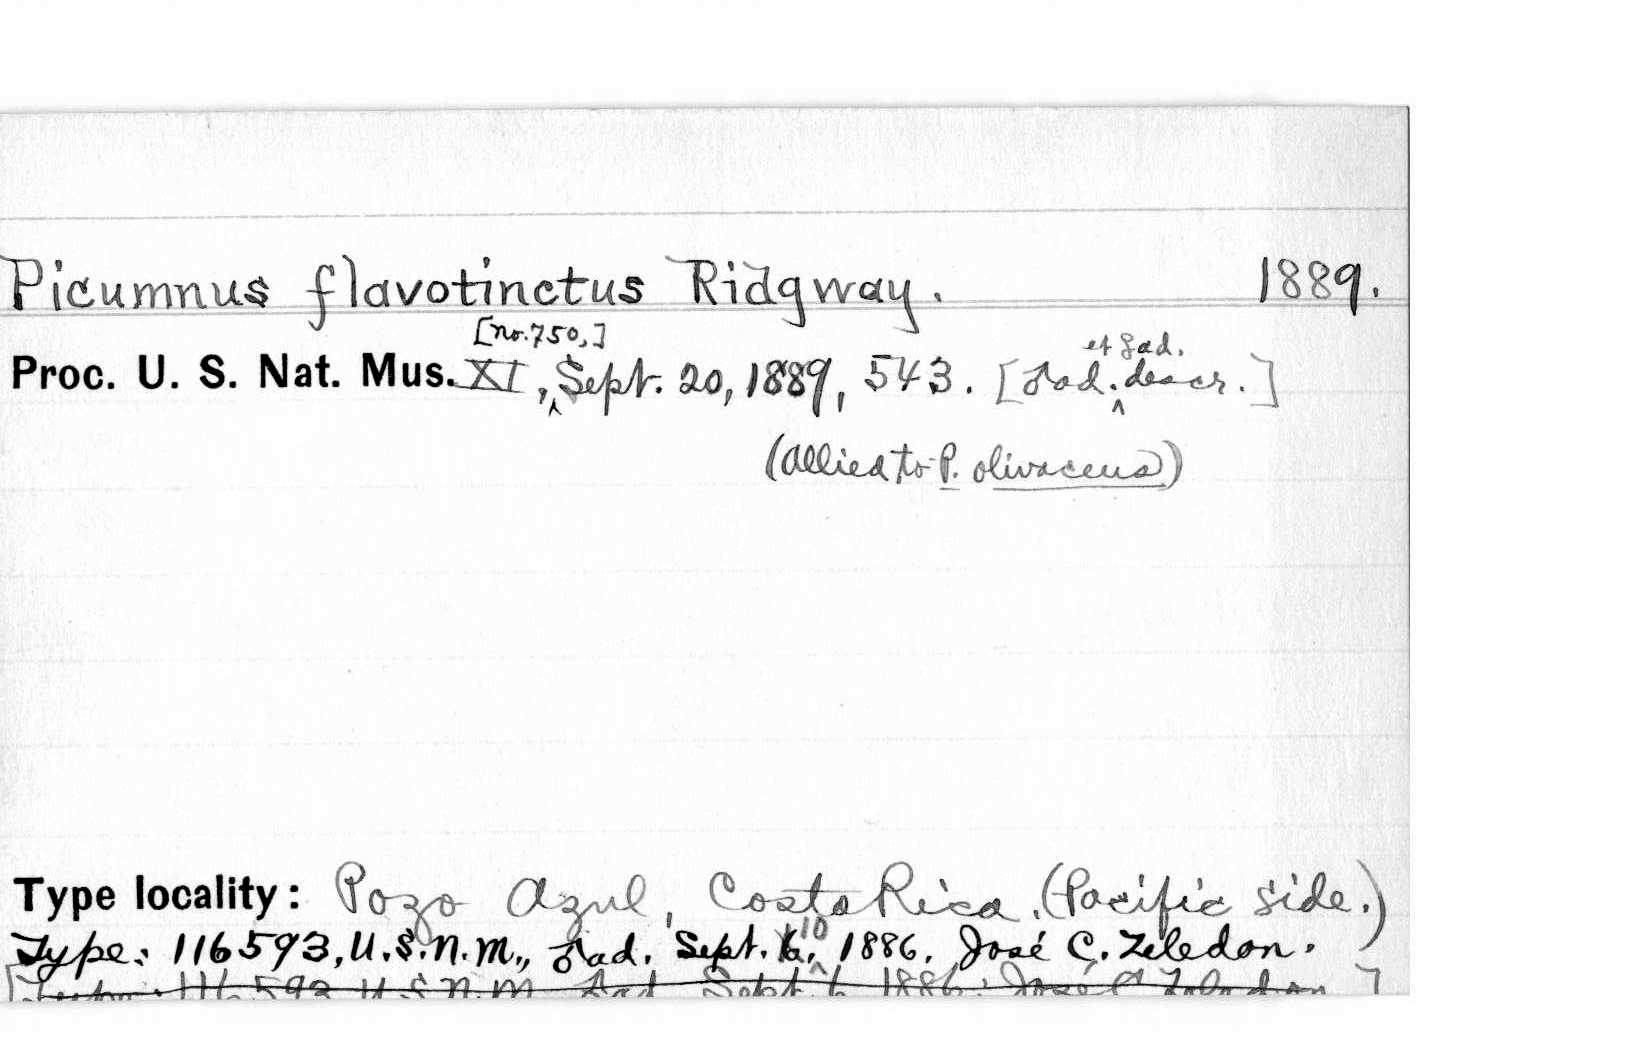 Picumnus flavotinctus Ridgway. 1889.
[no. 750,]
et ♀ad.
Proc. U. S. Nat. Mus. XI, ‸ Sept. 20, 1889, 543. [♂ad. ‸ descr.]
(allied to P. olivaceus)
Type locality: Pozo Azul, Costa Rica. (Pacific side.)
10
Type: 116593, U.S.N.M., ♂ad. Sept. 6, ‸ 1886. José C. Zeledon.
[Type: 116593 U.S.N.M. ♂ad Sept. 6 1886. José C Zeledon ]